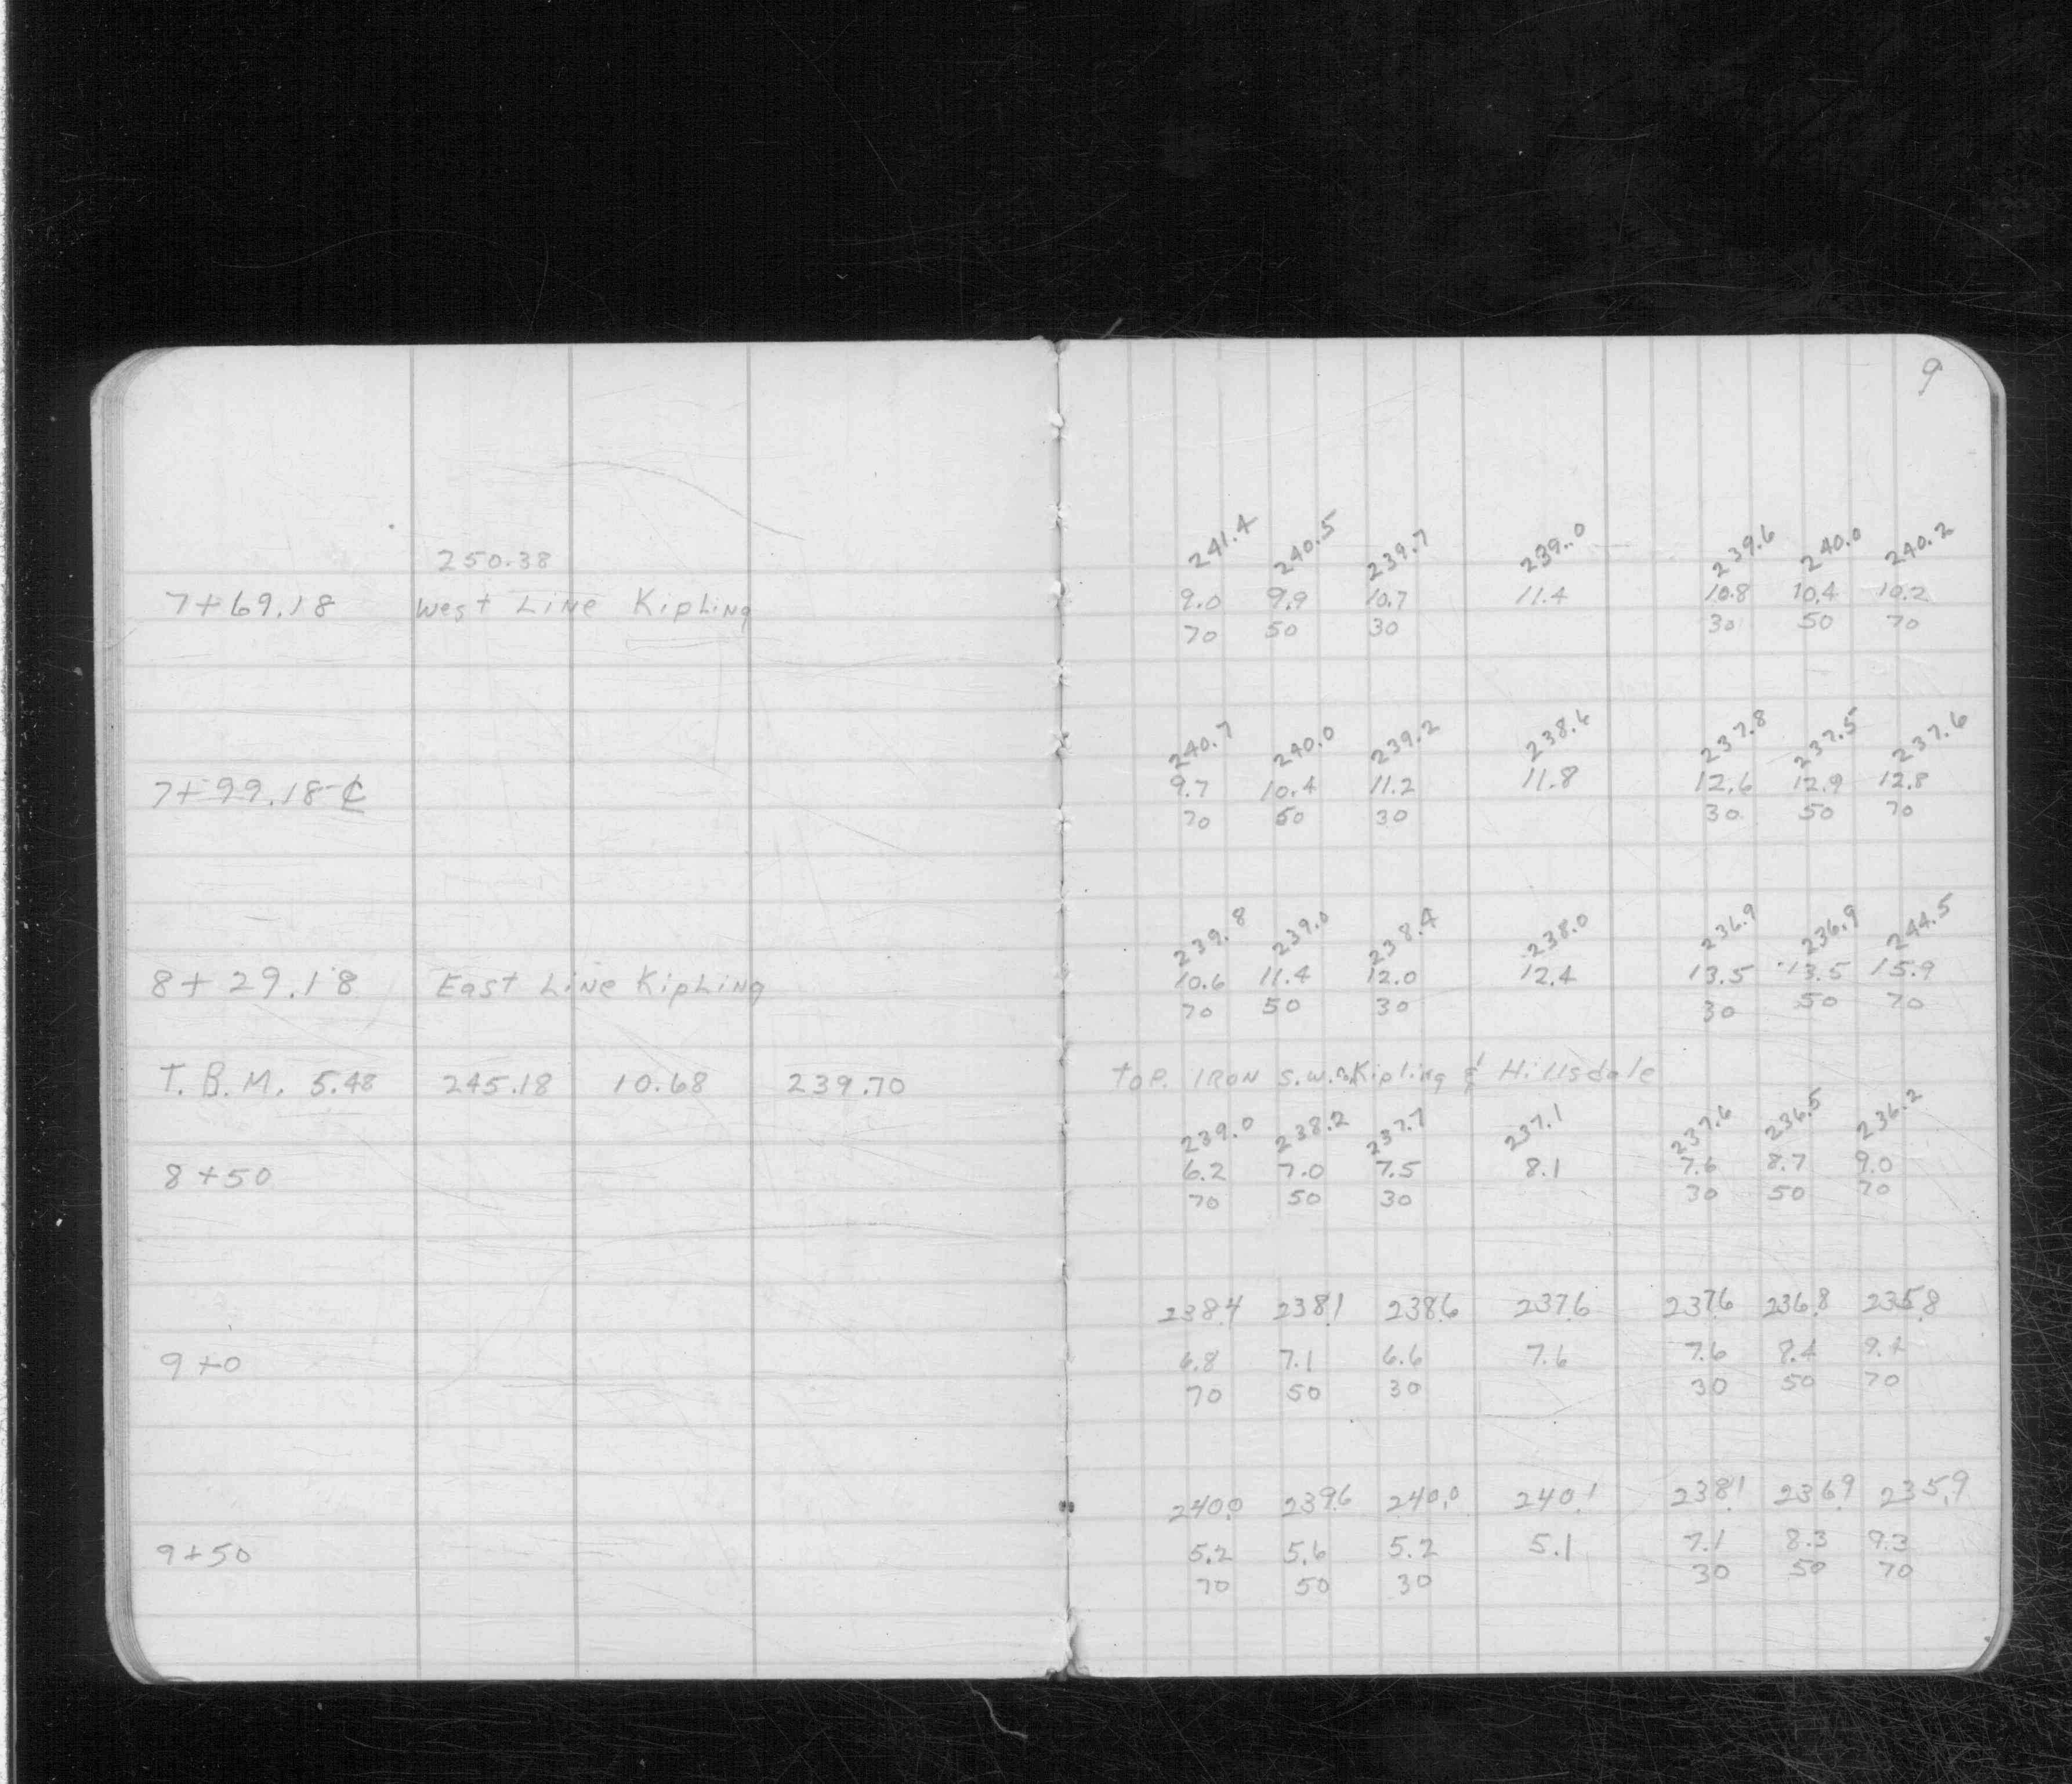 9
250.38
241.4 240.5 239.7 239.0 239.6 240.0 240.2
7+69.18 West Line Kipling 9.0 9.9 10.7 11.4 10.8 10.4 10.2
70 50 30 30 50 70
240.7 240.0 239.2 238.6 237.8 237.5 237.6
7+99.18 ℄ 9.7 10.4 11.2 11.8 12.6 12.9 12.8
70 50 30 30 50 70
239.8 239.0 238.4 238.0 236.9 236.9 244.5
8+29.18 East Line Kipling 10.6 11.4 12.0 12.4 13.5 13.5 15.9
70 50 30 30 50 70
T.B.M. 5.48 245.18 10.68 239.70 Top. Iron S.W. Kipling & Hillsdale
239.0 238.2 237.7 237.1 237.6 236.5 236.2
8+50 6.2 7.0 7.5 8.1 7.6 8.7 9.0
70 50 30 30 50 70
238.4 238.1 238.6 237.6 237.6 236.8 235.8
9+0 6.8 7.1 6.6 7.6 7.6 8.4 9.4
70 50 30 30 50 70
240.0 239.6 240.0 240.1 238.1 236.9 235.9
9+50 5.2 5.6 5.2 5.1 7.1 8.3 9.3
70 50 30 30 50 70